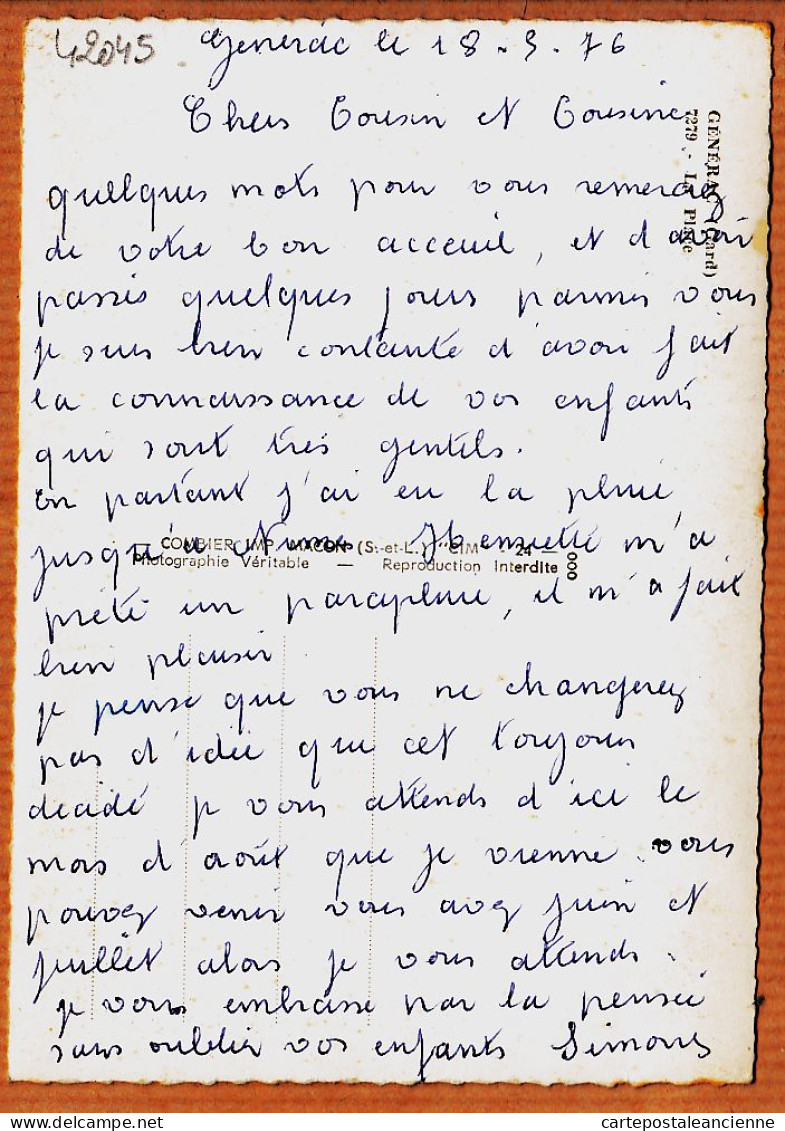 42045
Générac le 18.5.76
Chers Cousin et Cousine
quelques mots pour vous remerciez
de votre bon acceuil, et d'avoir
passés quelques jours parmis vous
je suis bien contante d'avoir fait
la connaissance de vos enfants
qui sont très gentils.
En partant j'ai eu la pluie
jusqu'a Nimes. M'a
prété un parapluie, il m'a fait
bien plaisir
je pense que vous ne changerez
pas d'idée que cet toujours
decidé je vous attends d'ici le
mois d'août que je vienne. vous
pouvez venir vous avez juin et
juillet alors je vous attends.
je vous embrasse par la pensée
sans oublier vos enfants Simone
GÉNÉRAC (Gard)
7279 - La Place
COMBIER IMP. MACON (S.-et-L.) "CIM" - 24 -
Photographie Véritable — Reproduction Interdite
000
cartepostaleancienne